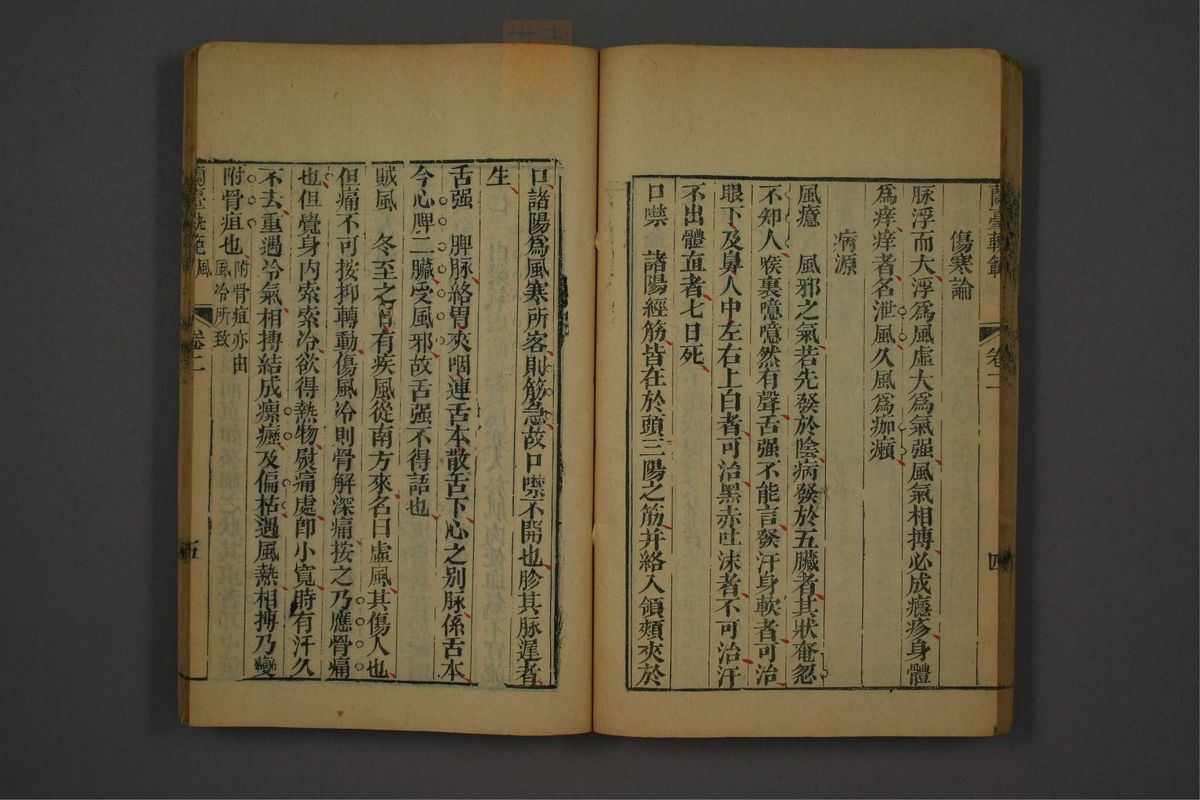 蘭臺軌範
卷二
四
傷寒論
脉浮而大浮爲風虛大爲氣强風氣相搏必成癮疹身體
爲痒痒者名泄風久風爲痂癩
病源
風癔 風邪之氣若先發於陰病發於五臟者其狀奄忽
不知人喉裏噫噫然有聲舌强不能言發汗身軟者可治
眼下及鼻人中左右上白者可治黑赤吐沫者不可治汗
不出體直者七日死
口噤 諸陽經筋皆在於頭三陽之筋并絡入頷頰夾於
口諸陽爲風寒所客則筋急故口噤不開也胗其脉遲者
生
舌强 脾脉絡胃夾咽連舌本散舌下心之别脉係舌本
今心脾二臟受風邪故舌强不得語也
賊風 冬至之日有疾風從南方來名曰虛風其傷人也
但痛不可按抑轉動傷風冷則骨解深痛按之乃應骨痛
也但覺身内索索冷欲得熱物熨痛處卽小寬時有汗久
不去重遇冷氣相搏結成瘰癧及偏枯遇風熱相搏乃變
附骨疽也附骨疽亦由風冷所致
蘭臺軌範 風
卷二
五